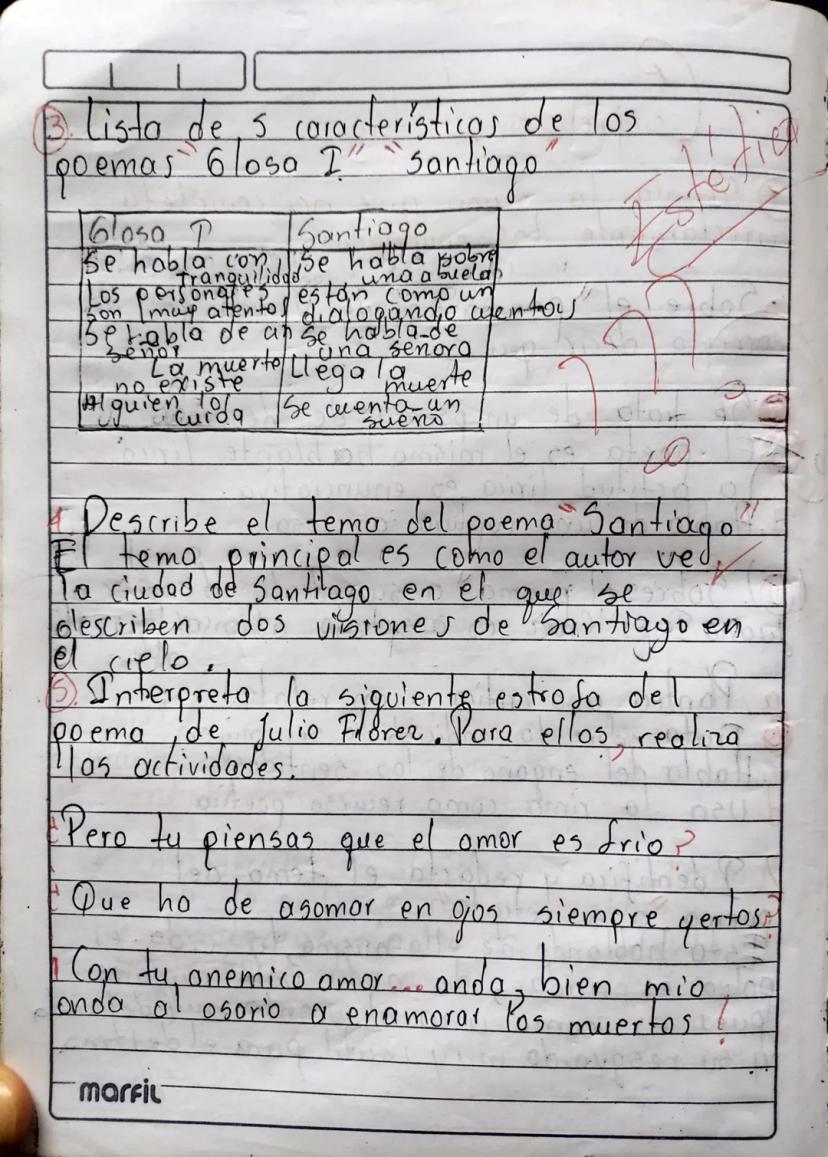 3. lista de 5 características de los
poemas "Glosa I" "Santiago"
Estética
Glosa I Santiago
Se habla con tranquilidad Se habla sobre una abuela
Los personajes son muy atentos están como un dialogando cuentos
Se habla de un señor Se habla de una señora
La muerte no existe Llega la muerte
Alguien lo cuida Se cuenta un sueño
4. Describe el tema del poema "Santiago"
El tema principal es como el autor ve
la ciudad de Santiago en el que se
describen dos visiones de Santiago en
el cielo.
5. Interpreta la siguiente estrofa del
poema de Julio Flórez. Para ellos, realiza
las actividades.
¿Pero tu piensas que el amor es frio?
¿Que ha de asomar en ojos siempre yertos?
¡Con tu anemico amor... anda, bien mio
anda al osario a enamorar los muertos!
marfil